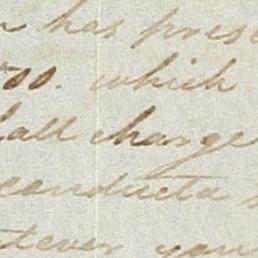 has pres
00. which
all change
conducta
tever your